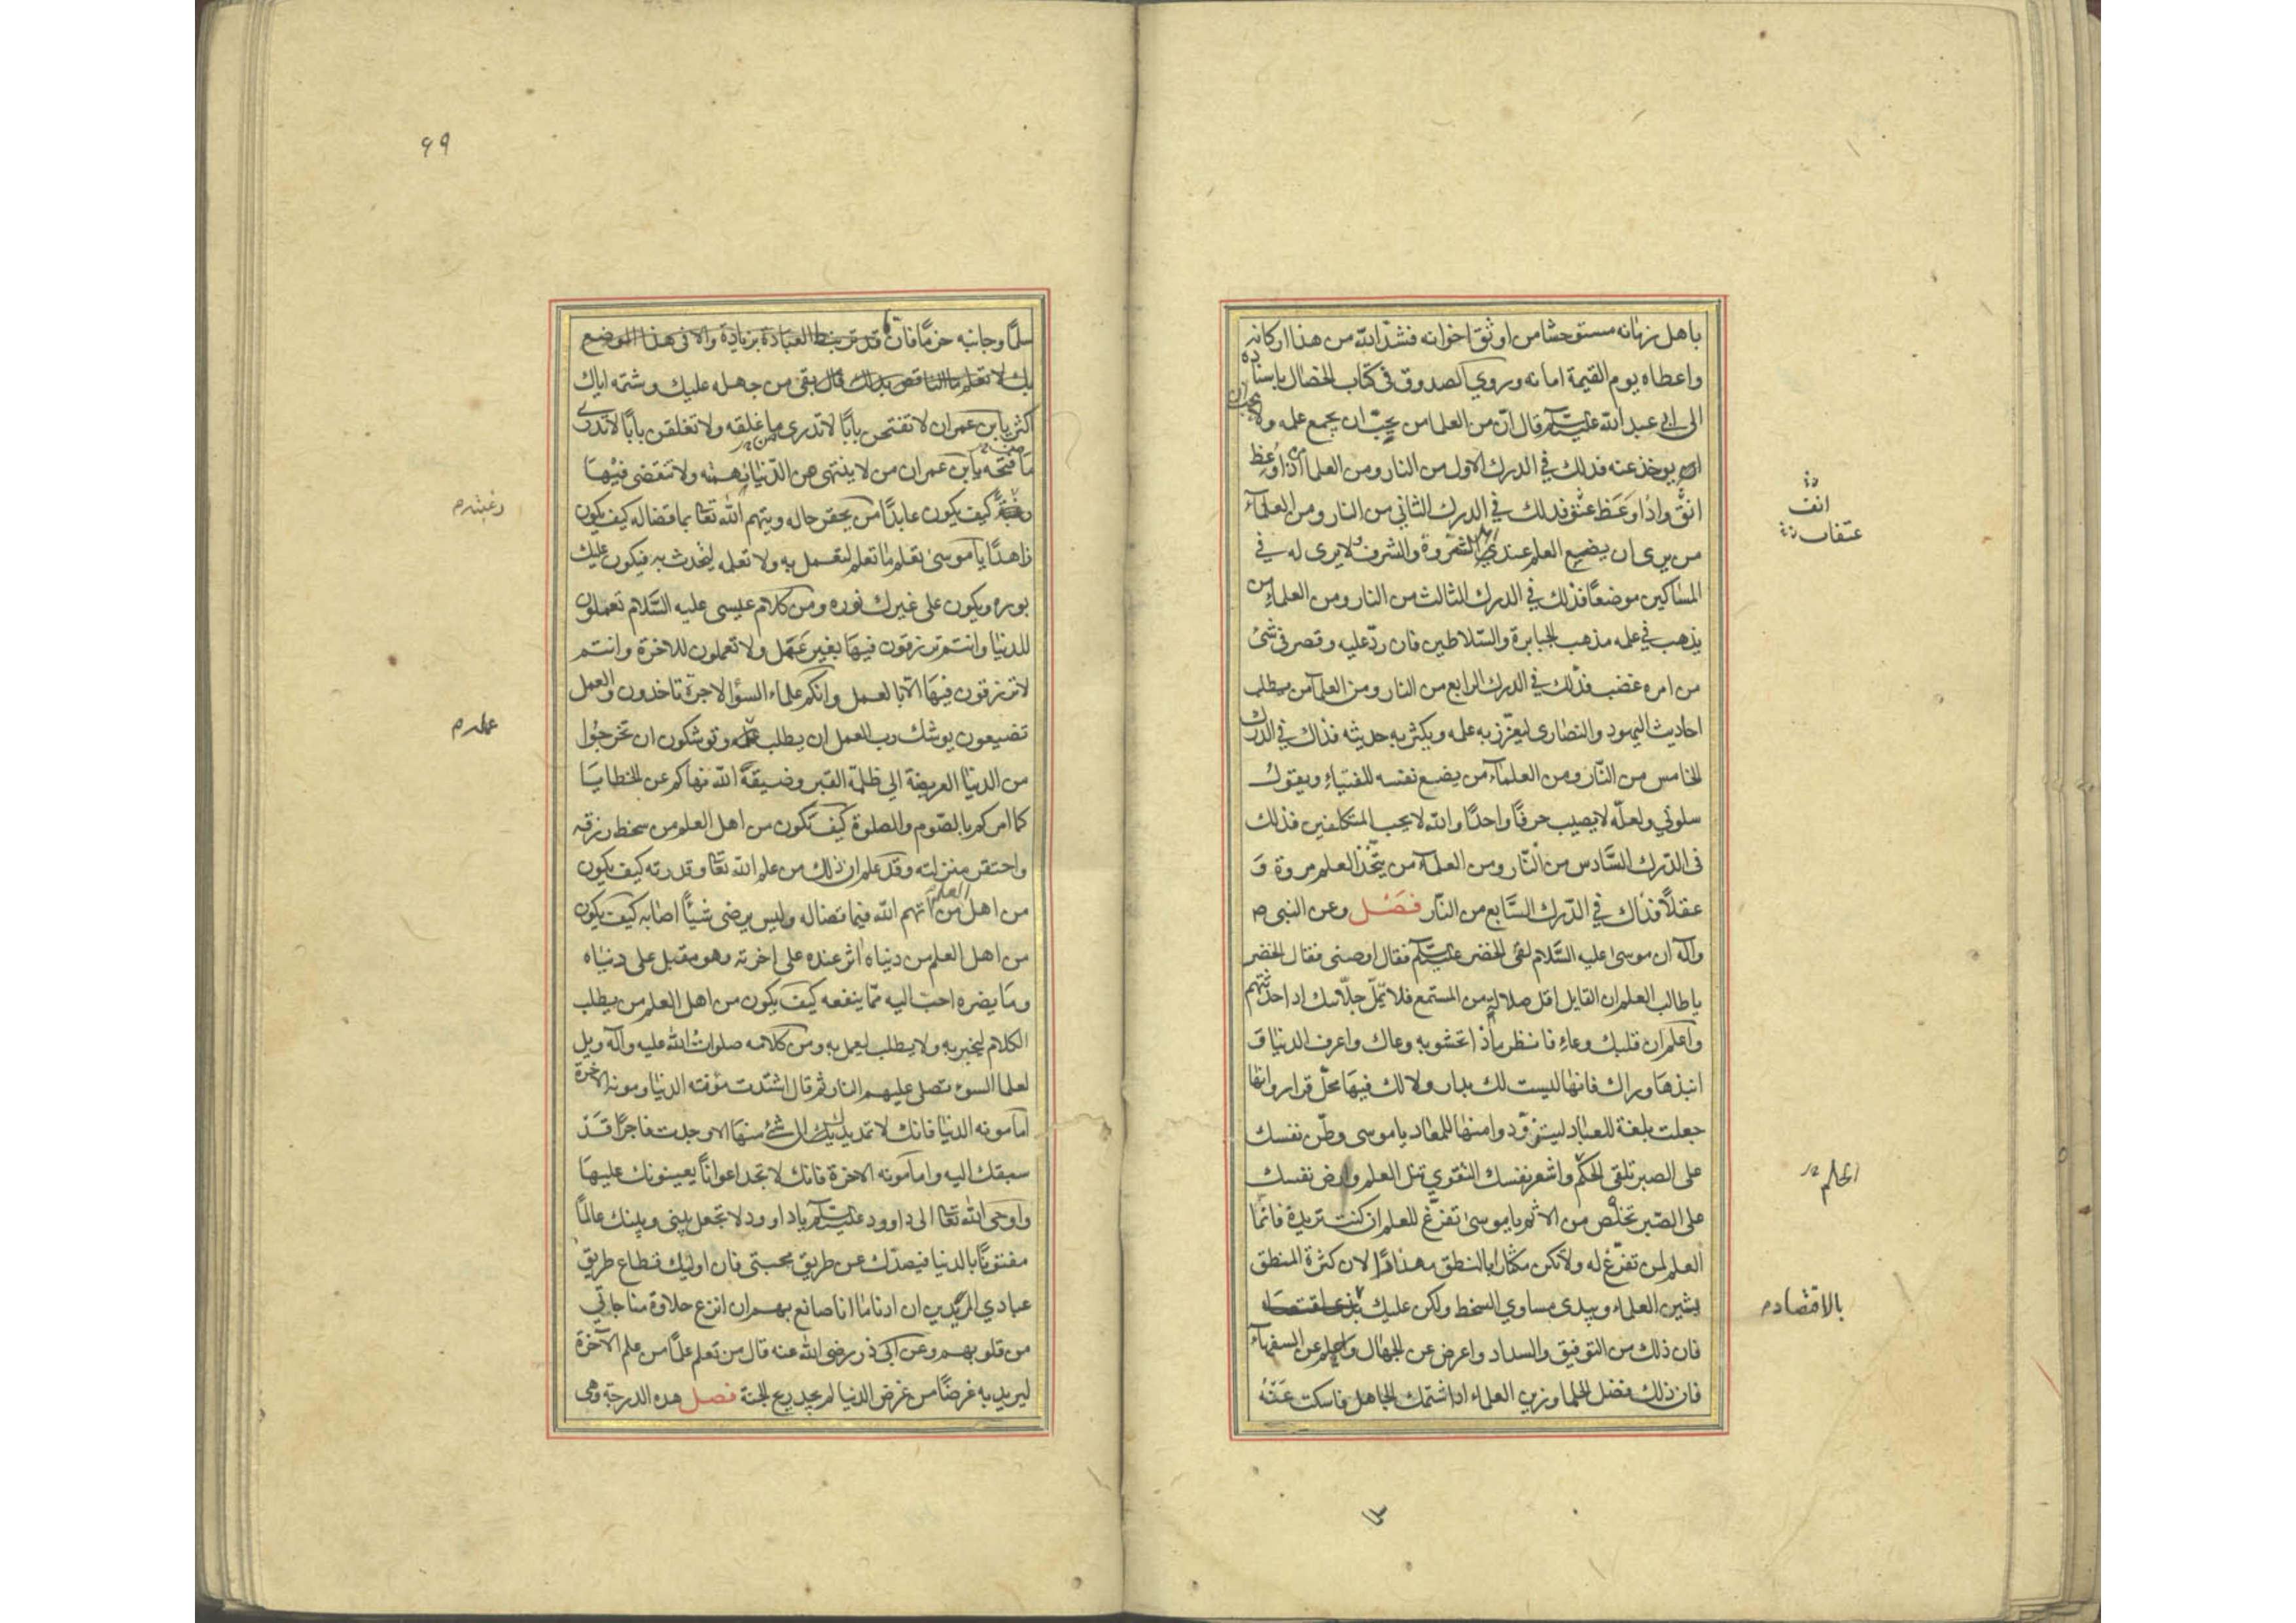 باهل زمانه مستوحشا من اوثق اخوانه فشد الله من هذا اركانه
واعطاه يوم القيمة امانه وروي الصدوق في كتاب الخصال باسناده
الى ابي عبد الله عليه السلم قال ان من العلما من يحب ان يجمع علمه ولا يحب ان
يوخذ عنه فذلك في الدرك الاول من النار ومن العلما من اذا وعظ
انف واذا وعظ عنف فذلك في الدرك الثاني من النار ومن العلماء
من يرى ان يضع العلم عند ذوي الثروة والشرف ولا يرى له في
المساكين موضعا فذلك في الدرك الثالث من النار ومن العلماء من
يذهب في علمه مذهب الجبابرة والسلاطين فان رد عليه وقصر في شئ
من امره غضب فذلك في الدرك الرابع من النار ومن العلماء من يطلب
احاديث اليهود والنصارى ليعزز به علمه ويكثر به حديثه فذاك في الدرك
الخامس من النار ومن العلماء من يضع نفسه للفتياء ويقول
سلوني ولعله لا يصيب حرفا واحدا والله لا يحب المتكلفين فذلك
في الدرك السادس من النار ومن العلماء من يتخذ العلم مروة و
عقلا فذاك في الدرك السابع من النار فصل وعن النبي ص
وآله ان موسى عليه السلام لقى الخضر عليه السلم فقال اوصنى فقال الخضر
يا طالب العلم ان القايل اقل ملالة من المستمع فلا تمل جلساءك اذا حدثتهم
واعلم ان قلبك وعاء فانظر ماذا تحشو به وعاك واعرف الدنيا و
انبذها وراك فانها ليست لك بدار ولا لك فيها محل قرار وانها
جعلت بلغة للعباد ليتزودوا منها للمعاد يا موسى وطن نفسك
على الصبر تلقى الحكم واشعر نفسك التقوي تنل العلم وارض نفسك
على الصبر تخلص من الاثم يا موسى تفرغ للعلم ان كنت تريده فانما
العلم لمن تفرغ له ولا تكن مكثارا بالنطق مهذارا لان كثرة المنطق
يشين العلماء ويبدى مساوي السخط ولكن عليك
فان ذلك من التوفيق والسداد واعرض عن الجهال واحلم عن السفهاء
فان ذلك فضل الحلما وزين العلماء اذا شتمك الجاهل فاسكت عنه
انف
الحلم
بالاقتصاد م
٦٩
سلما وجانبه حزما فان
بقى من جهله عليك وشتمه اياك
اكثر يابن عمران لا تفتحن بابا لا تدرى ما غلقه ولا تغلقن بابا لا تدرى
ما فتحه يابن عمران من لا ينتهى من الدنيا نهمته ولا تنقضى فيها
كيف يكون عابدا من يحقر حاله ويتهم الله تعا بما قضاله كيف يكون
زاهدا يا موسى تعلم ما تعلم لتعمل به ولا تعلمه ليتحدث به فيكون عليك
بوره ويكون على غيرك نوره ومن كلام عيسى عليه السلام تعملون
للدنيا وانتم ترزقون فيها بغير عمل ولا تعملون للاخرة وانتم
لا ترزقون فيها الا بالعمل وانكم علماء السؤ الاجرة تاخذون والعمل
تضيعون يوشك رب العمل ان يطلب عمله وتوشكون ان تخرجوا
من الدنيا العريضة الي ظلمة القبر وضيقه الله نهاكم عن الخطايا
كما امركم بالصوم والصلوة كيف تكون من اهل العلم من سخط رزقه
واحتقر منزلته وقد علم ان ذلك من علم الله تعا وقدرته كيف يكون
من اهل العلم من اتهم الله فيما قضاله وليس يرضى شيئا اصابه كيف يكون
من اهل العلم من دنياه اثر عنده على اخرته وهو مقبل على دنياه
وما يضره احب اليه مما ينفعه كيف يكون من اهل العلم من يطلب
الكلام ليخبر به ولا يطلب ليعمل به ومن كلامه صلوات الله عليه وآله ويل
لعلما السوء تصلى عليهم النار ثم قال اشتدت مؤنته الدنيا ومونة الاخرة
اما مونه الدنيا فانك لا تمد يدك الى شئ منها الا وجدت فاجرا قد
سبقك اليه واما مونه الاخرة فانك لا تجد اعوانا يعينونك عليها
واوحى الله تعا الى داوود عليه السلم يا داوود لا تجعل بينى وبينك عالما
مفتونا بالدنيا فيصدك عن طريق محبتى فان اوليك قطاع طريق
عبادي المريدين ان ادنا ما انا صانع بهم ان انزع حلاوة مناجاتي
من قلوبهم وعن ابى ذر رضى الله عنه قال من تعلم علما من علم الآخرة
ليريد به غرضا من غرض الدنيا لم يجد ريح الجنة فصل هذه الدرجة وهى
رغبته م
عمله م